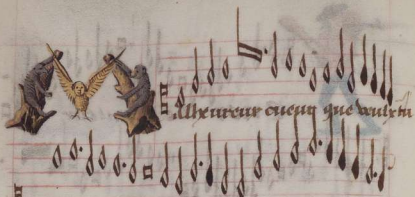 alheureur cueur que veulx tu